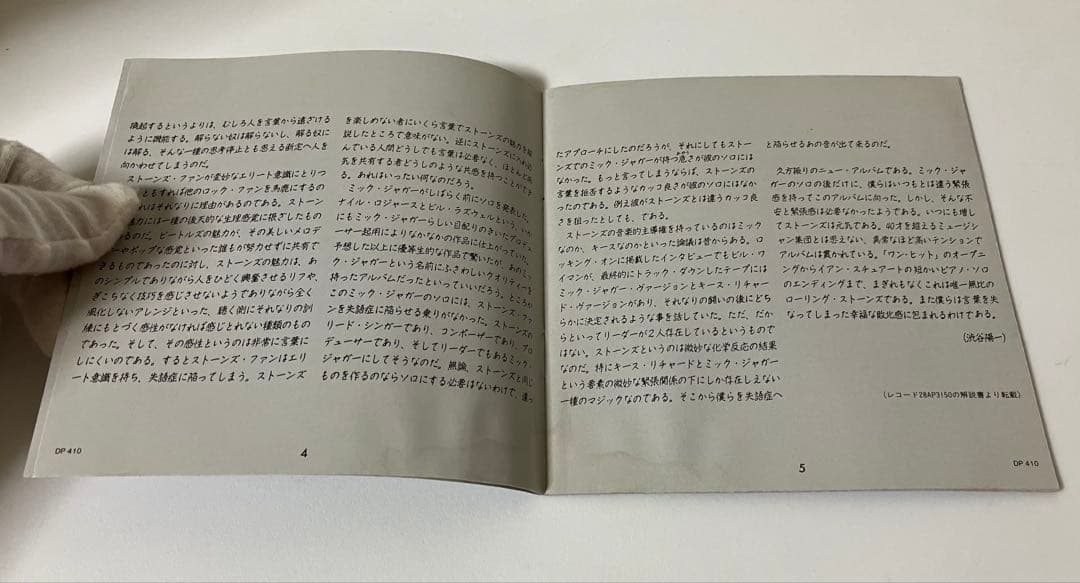 喚起するというよりは、むしろ人を言葉から遠ざける
ように機能する。解らない奴は解らないし、解る奴に
は解る、そんな一種の思考停止とも思える断定へ人を
向かわせてしまうのだ。
ストーンズ・ファンが変妙なエリート意識にとりつ
ともすれば他のロック・ファンを馬鹿にするの
それなりに理由があるのである。ストーン
魅力には一種の後天的な生理感覚に根ざしたもの
るのだ。ビートルズの魅力が、その美しいメロデ
ーやポップな感覚といった誰もが努力せずに共有で
きるものであったのに対し、ストーンズの魅力は、あ
のシンプルでありながら人をひどく興奮させるリフや、
ぎこちなく技巧を感じさせないようでありながら全く
風化しないアレンジといった、聴く側にそれなりの訓
練にもとづく感性がなければ感じとれない種類のもの
であった。そして、その感性というのは非常に言葉に
しにくいのである。するとストーンズ・ファンはエリ
ート意識を持ち、失語症に陥ってしまう。ストーンズ
を楽しめない者にいくら言葉でストーンズの魅力を解
説したところで意味がない。逆にストーンズにハマり
んでいる人間どうしでも言葉は必要なく、ほとんど病
気を共有する者どうしのような共感を持つことができ
る。あれはいったい何なのだろう。
ミック・ジャガーがしばらく前にソロを発表した。
ナイル・ロジャースとビル・ラズウェルという、いか
にもミック・ジャガーらしい目配りのきいたプロデュ
ーサー起用によりなかなかの作品に仕上がっていた。
予想した以上に優等生的な作品で驚いたが、あのミッ
ク・ジャガーという名前にふさわしいクオリティーを
持ったアルバムだったといっていいだろう。ところが
このミック・ジャガーのソロには、ストーンズ・ファ
ンを失語症に陥らせる乗りがなかった。ストーンズの
リード・シンガーであり、コンポーザーであり、プロ
デューサーであり、そしてリーダーでもあるミック・
ジャガーにしてそうなのだ。無論、ストーンズと同じ
ものを作るのならソロにする必要はないわけで、違っ
DP 410
4
たアプローチにしたのだろうが、それにしてもストー
ンズでのミック・ジャガーが持つ危さが彼のソロには
なかった。もっと言ってしまうならば、ストーンズの
言葉を拒否するようなカッコ良さが彼のソロにはなか
ったのである。例え彼がストーンズとは違うカッコ良
さを狙ったとしても、である。
ストーンズの音楽的主導権を持っているのはミック
なのか、キースなのかといった論議は昔からある。ロ
ッキング・オンに掲載したインタビューでもビル・ワ
イマンが、最終的にトラック・ダウンしたテープには
ミック・ジャガー・ヴァージョンとキース・リチャー
ド・ヴァージョンがあり、それなりの闘いの後にどち
らかに決定されるような事を話していた。ただ、だか
らといってリーダーが2人存在しているというもので
はない。ストーンズというのは微妙な化学反応の結果
なのだ。特にキース・リチャードとミック・ジャガー
という要素の微妙な緊張関係の下にしか存在しえない
一種のマジックなのである。そこから僕らを失語症へ
と陥らせるあの音が出て来るのだ。
久方振りのニュー・アルバムである。ミック・ジャ
ガーのソロの後だけに、僕らはいつもとは違う緊張
感を持ってこのアルバムに向った。しかし、そんな不
安と緊張感は必要なかったようである。いつにも増し
てストーンズは元気である。40才を超えるミュージシ
ャン集団とは思えない、異常なほど高いテンションで
アルバムは貫かれている。「ワン・ヒット」のオープニ
ングからイアン・スチュアートの短かいピアノ・ソロ
のエンディングまで、まぎれもなくこれは唯一無比の
ローリング・ストーンズである。また僕らは言葉を失
なってしまった幸福な敗北感に包まれるわけである。
(渋谷陽一)
(レコード28AP3150の解説書より転載)
5
DP 410